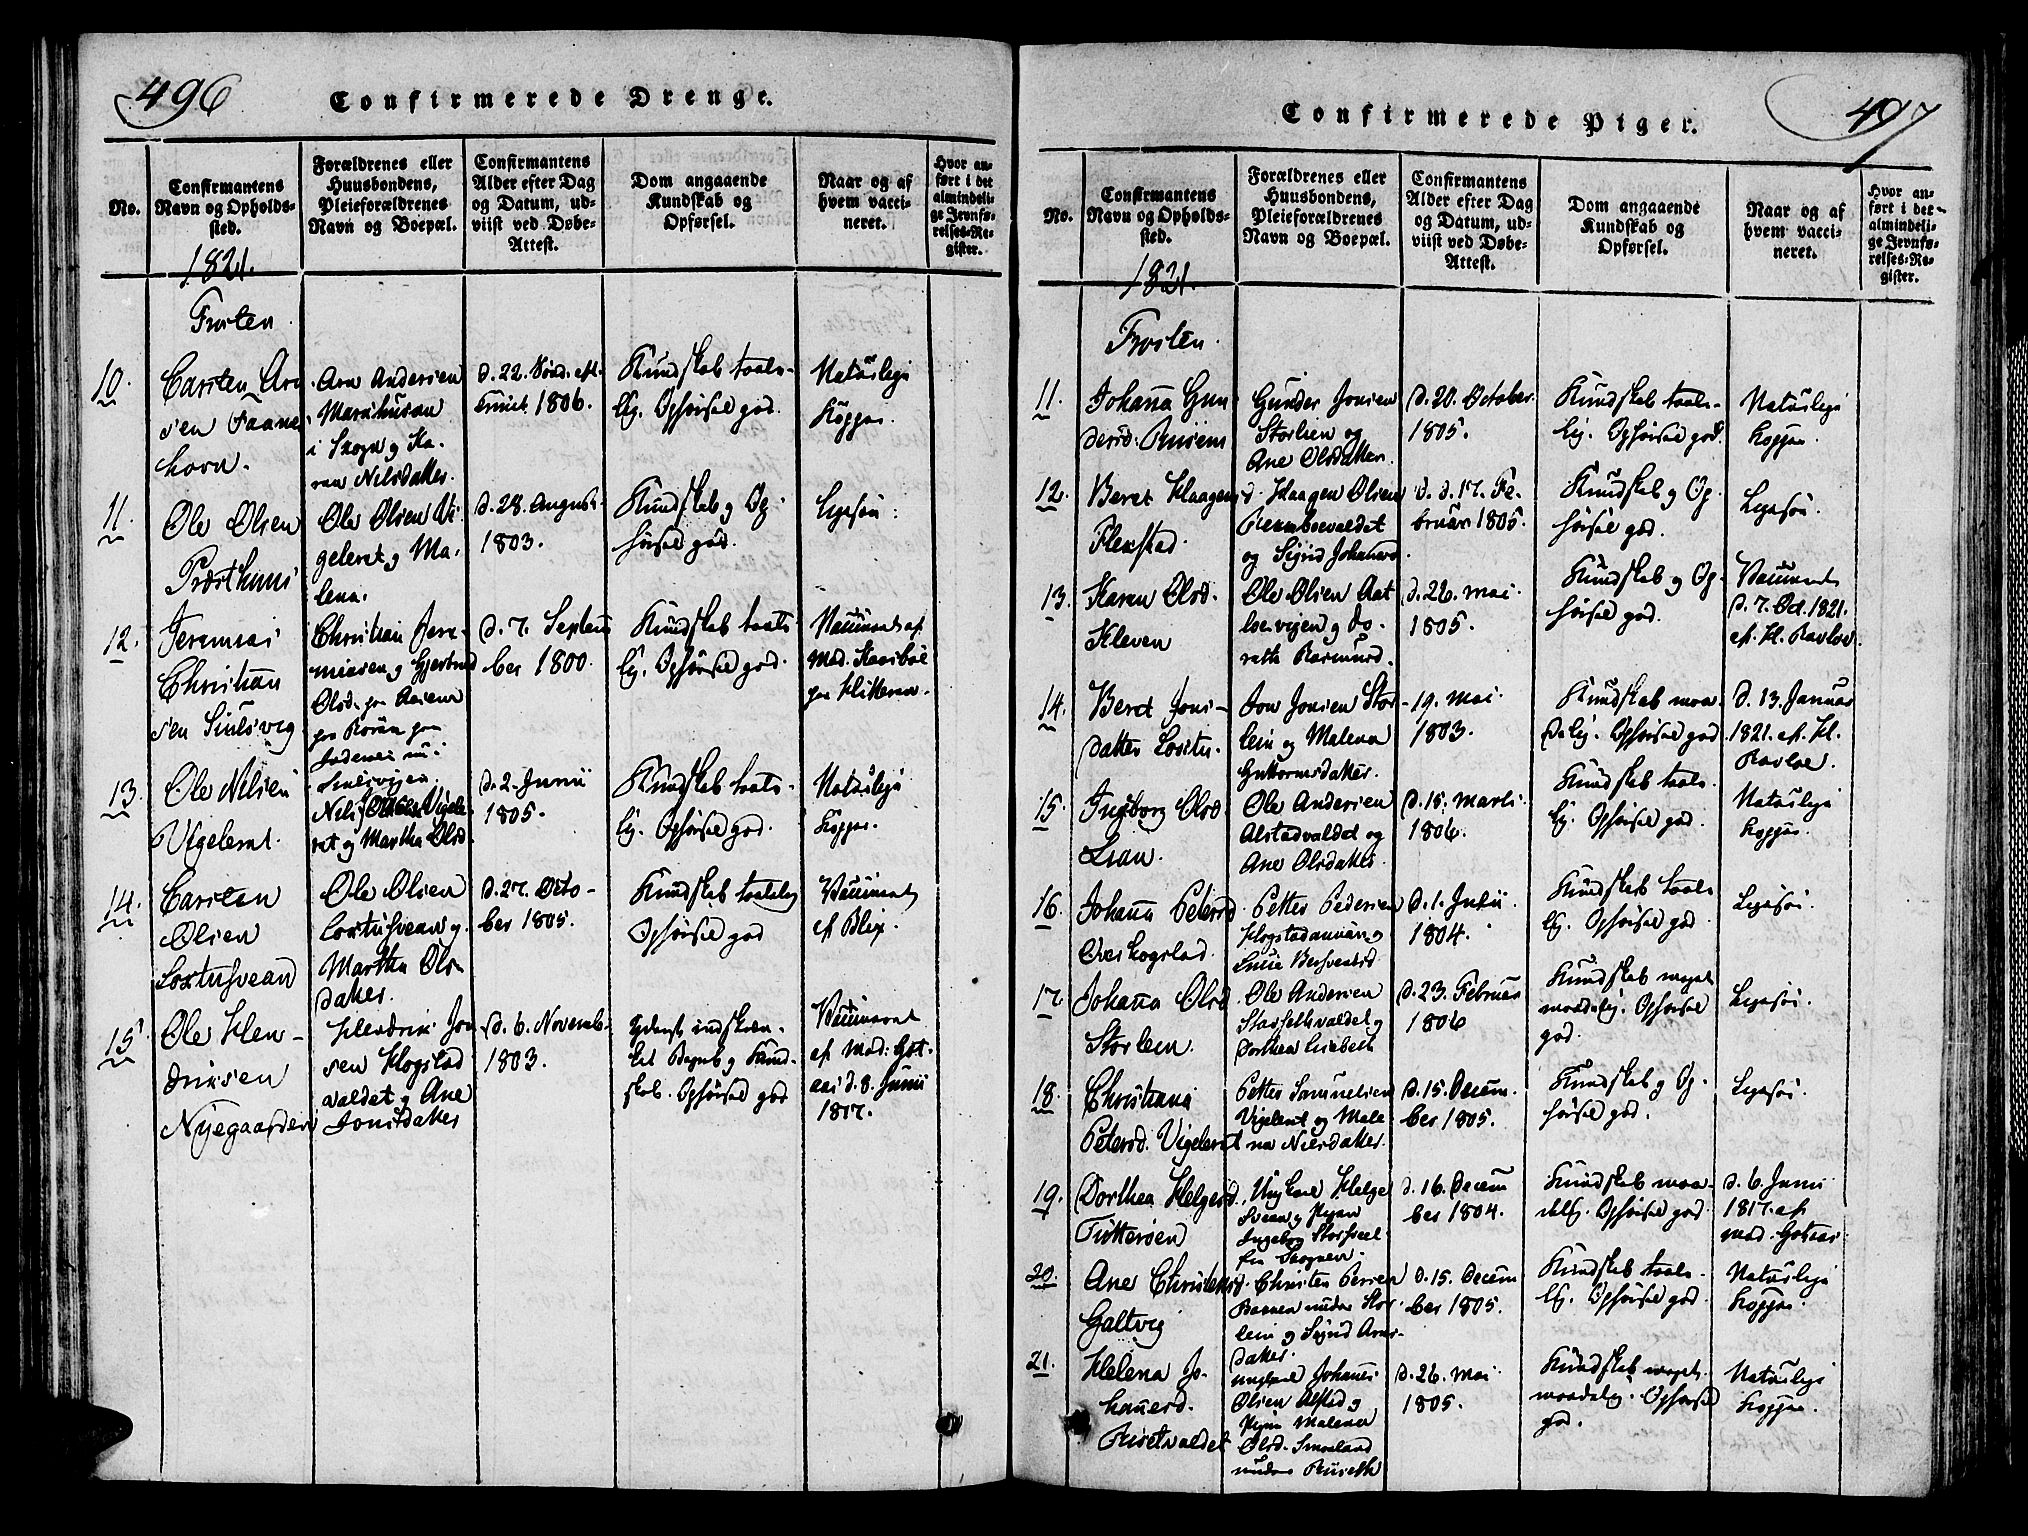 496
Confirmerede Drenge.
No.
Confirmantens
Navn og Opholds-
sted.
1821.
Forældrenes eller
Huusbondens,
Pleieforældrenes
Navn og Boepæl.
Confirmantens
Alder efter Dag
og Datum, ud-
viist ved Døbe-
Attest.
Dom angaaende
Kundskab og
Opførsel.
Naar og af
hvem vacci-
neret.
Hvor an-
ført i det
almindeli-
ge Jevnfø-
relses-Re-
gister.
Frosten
10.
Carsten Arn
sen Faane
horn.
Arn Andersen
i Skogn og Ka-
ren Nilsdatter.
d. 22. Sønd. eft.
Trinit. 1806.
Kundskab taale-
lig. Opførsel god.
Naturlige
Kopper.
11.
Ole Olsen
Præsthuus
Ole Olsen Vi-
gelerat og Ma-
lena.
d. 28. August
1803.
Kundskab og Op-
førsel god.
12.
Jeremias
Christian
sen
Christian Jere-
miasen og Gjertrud
Olsd.
d. 7. Septem
ber 1800.
Kundskab taale
lig. Opførsel god.
Vaccineret af
Mad.
paa Hitteren.
13.
Ole Nilsen
Vigelerat.
Nils Olsen Vigele-
rat og Martha Olsd.
d. 2. Junii
1805.
Kundskab taale-
lig. Opførsel god.
Naturlige
Kopper.
14.
Carsten
Olsen
Loxtusvean
Ole Olsen
Loxtusvean og
Martha Ols-
datter.
d. 27. Octo-
ber 1805.
Kundskab taalelig
Opførsel god
Vaccineret
af Blix.
15.
Ole Hen-
driksen
Nyegaarden
Hendrik Jon
sen Hogstad
valdet og Ane
Jonsdatter
d. 6. Novemb.
1803.
indskræn-
ket Begreb og Kund-
skab. Opførsel god
Vaccineret
af Mad. Got-
aas d. 8. Junii
1817.
497
Confirmerede Piger.
No.
Confirmantens
Navn og Opholds-
sted.
1821.
Forældrenes eller
Huusbondens,
Pleieforældrenes
Navn og Boepæl.
Confirmantens
Alder efter Dag
og Datum, ud-
viist ved Døbe-
Attest.
Dom angaaende
Kundskab og
Opførsel.
Naar og af
hvem vacci-
neret.
Hvor an-
ført i det
almindeli-
ge Jevnfø-
relses-Re-
gister.
Frosten.
11.
Johana Gun
dersd.
Gunder Jonsen
Storlien og
Ane Olsdatter.
d. 20. October
1805.
Kundskab taale-
lig. Opførsel god.
Naturlige
Kopper.
12.
Beret Haagensd.
Flenstad.
Haagen Olsen
og Sigrid Johannsd.
d. 17. Fe-
bruar 1805.
Kundskab og Op-
førsel god.
13.
Karen Olsd.
Kleven
Ole Olsen Aat
loevigen og Do-
rethe Rasmusd.
d. 26. Mai
1805.
Kundskab og Op-
førsel god.
Vaccineret
d. 7. Oct. 1821.
af Kl. Ravloe.
14.
Beret Jons-
datter Loxtu.
Jon Jonsen Stor-
lein og Malena
Guttormsdatter.
19. Mai
1803.
Kundskab maa
delig. Opførsel god
d. 13. Januar
1821. af Kl.
Ravloe.
15.
Ingeborg Olsd.
Lian.
Ole Andersen
Alstadvaldet og
Ane Olsdatter
d. 15. Marti
1806.
Kundskab taale
lig. Opførsel god.
Naturlige
Kopper.
16.
Johana Petersd
Overhogstad.
Petter Pedersen
d. 1. Julii
1804.
Kundskab taale
lig. Opførsel god.
17.
Johana Olsd
Storlein.
Ole Andersen
Dorthea Lisebeth
d. 23. Februar
1806
Kundskab meget
maadelig. Opførsel
god.
18.
Christiana
Petersd. Vigelerat
Petter Samuelsen
Vigelerat og Male
na Nilsdatter.
d. 15. Decem
ber 1805.
Kundskab og Op-
førsel god.
19.
Dorthea Helgesd.
Tutterøen
Ungkarl Helge
Svean og Pigen
Ingeborg
d. 16. Decem
ber 1804.
Kundskab maa-
delig. Opførsel god
d. 6. Junii
1817. af
Mad. Gotaas.
20.
Ane Christensd.
Galtvig
Christen Persen
lein og Sigrid Arns-
datter.
d. 15. Decem
ber 1805.
Kundskab taale-
lig. Opførsel god.
Naturlige
Kopper.
21.
Helena Jo-
hanesd.
Ungkarl Johanes
Olsen Alstad og
Pigen Malena
Olsd.
d. 26. Mai
1805.
Kundskab meget
maadelig. Opførsel
god.
Naturlige
Kopper.